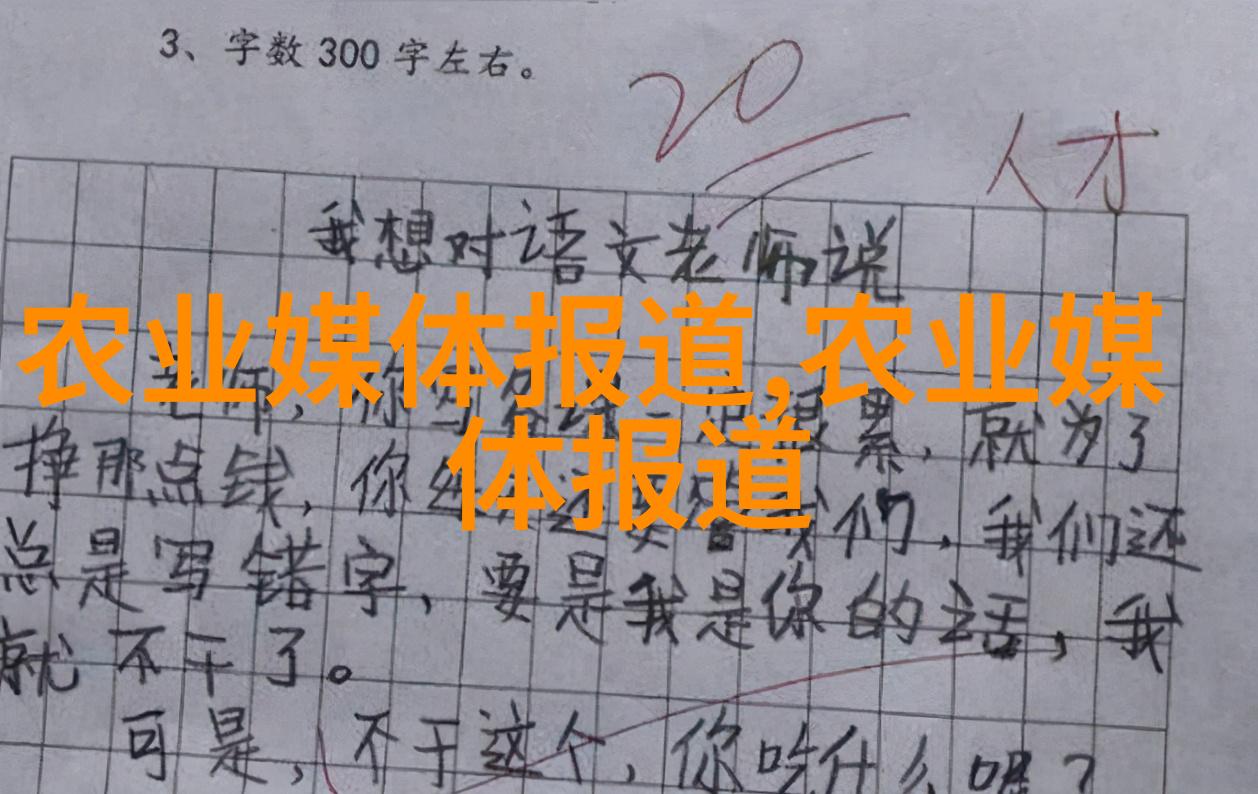 3、字数300字左右。
20
人才
我想对语文老师说
农业媒体报道,农业媒
体报道
老师,你 累,就为了
挣那点钱,你 我们,我们还
总是写错字,要是我是你的话,我
就不干了。
可是,不干这个,你吃什么呢?